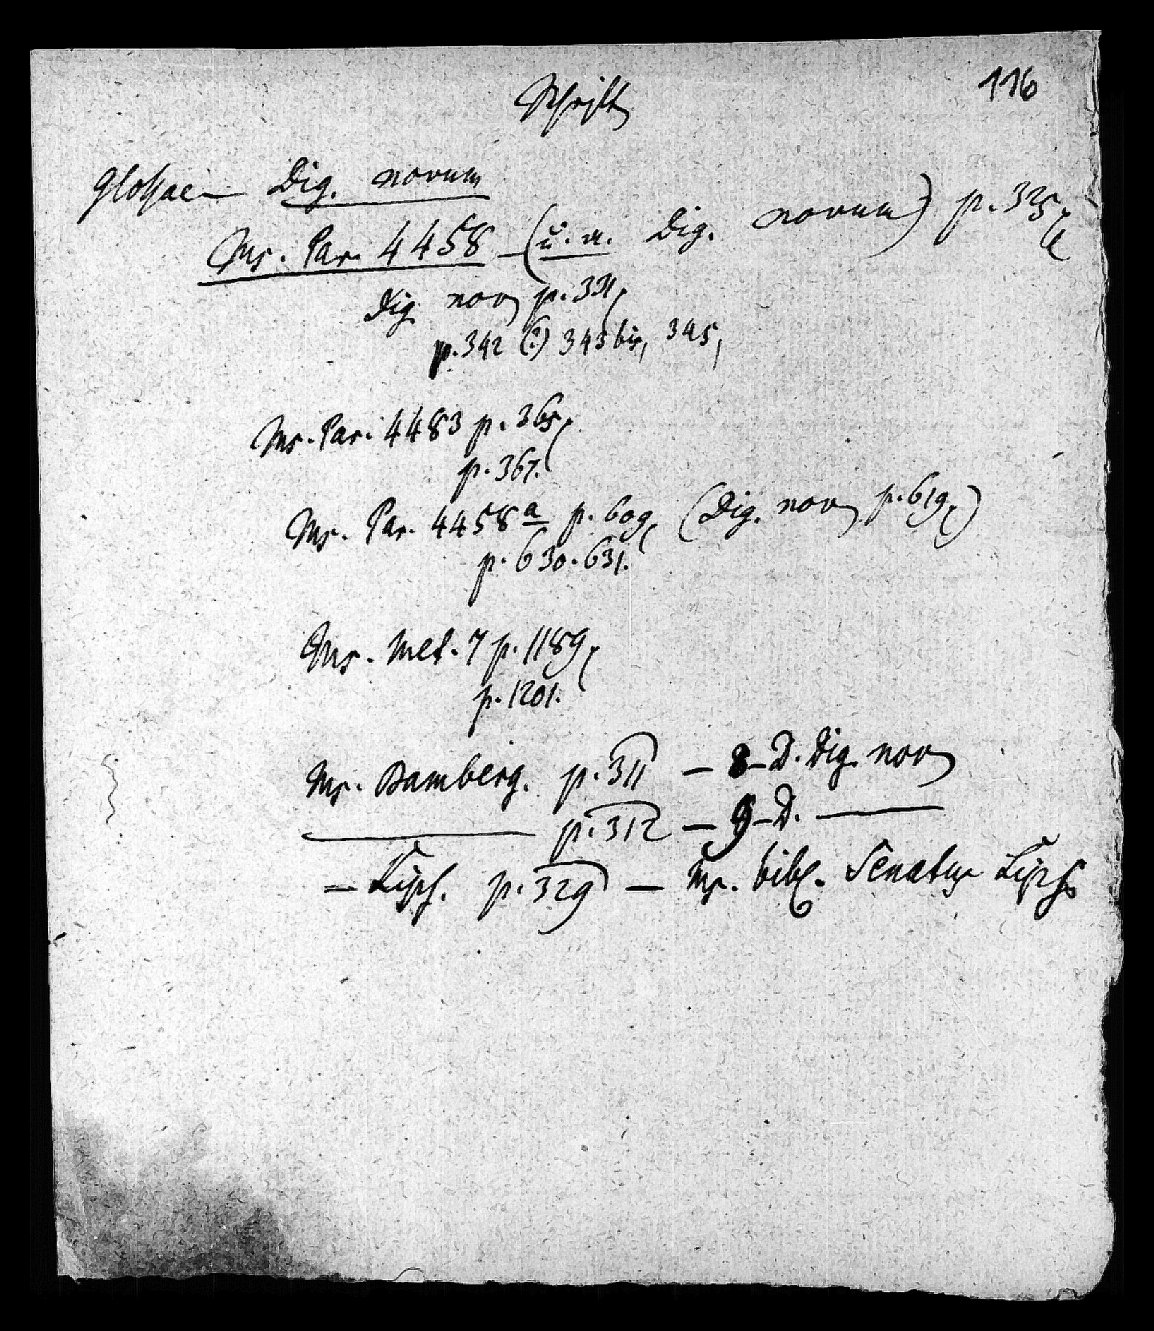 116
Schrift
Glossae — Dig. novum
Ms. Par. 4458 — (u. a. Dig. novum) p. 325,
Dig nov p. 331,
p. 342 (?) 343 bis, 345,
Ms. Par. 4483 p. 365,
p. 367.
Ms. Par. 4458a p. 609, (Dig. nov p. 619,)
p. 630. 631.
Ms. Met. 7 p. 1189,
p. 1201.
Ms. Bamberg. p. 311 — 8 – D. Dig nov
— p. 312 — 9 – D. —
— Lips. p. 329 — Ms. bibl. Senatus Lips